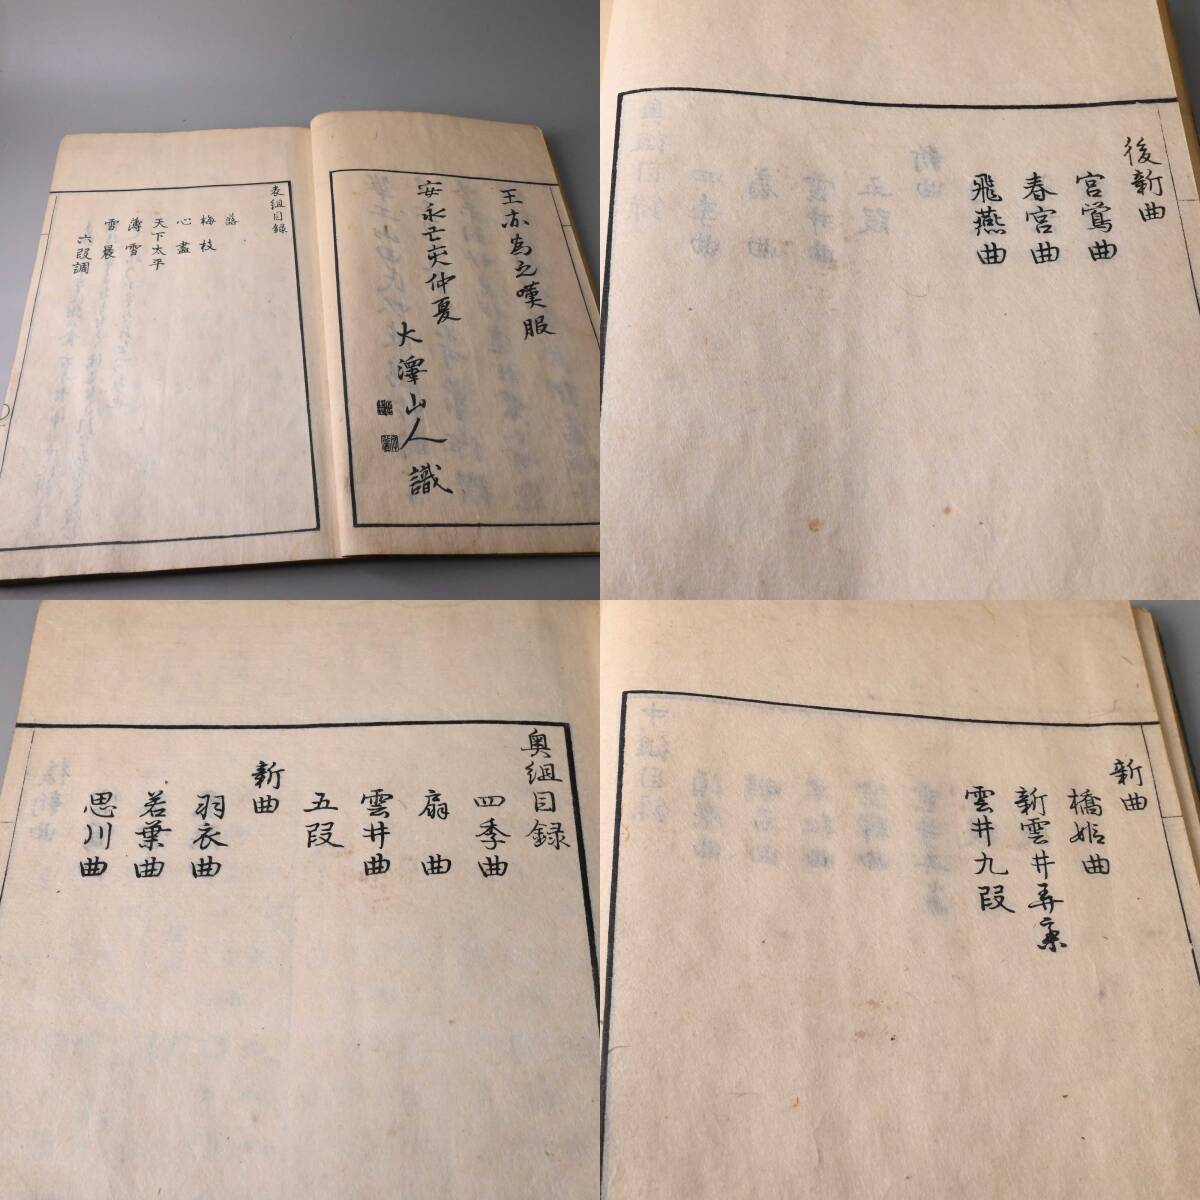 王亦為之嘆服
安永亡夾仲夏
大澤山人識
表組目錄
蕗
梅枝
心盡
天下太平
薄雪
雪晨
六段調
後新曲
宮鶯曲
春宮曲
飛燕曲
奥組目録
四季曲
扇曲
雲井曲
五段
新曲
羽衣曲
若葉曲
思川曲
新曲
橋姫曲
新雲井弄斎
雲井九段